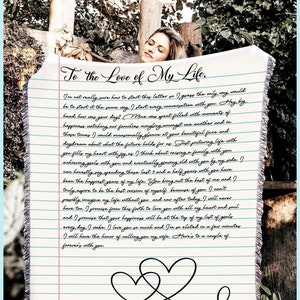 To the Love of My Life,
I'm not really sure how to start this letter so I guess the only way would
be to start it the same way I start every conversation with you. Hey big
head how was your day? Mine was spent filled with moments of
happiness watching our families mingling amongst one another and in
those times I would occasionally glance at your beautiful face and
daydream about what the future holds for us. Just picturing life with
you fills my heart with joy as I think about raising a family with you,
achieving goals with you and eventually growing old with you by my side. I
can honestly say spending these last and a half years with you have
been the happiest years of my life. You bring out the best of me and I
truly aspire to be the best version of myself because of you. I can't
possibly imagine my life without you and now after today I will never
have to. I promise from this forth to love you with all my heart and soul
and I promise that your happiness will be at the top of my list of goals
every day I wake. I love you so much and I'm so elated in a few minutes
I will have the honor of calling you my wife. Here's to a couple of
forever's with you.